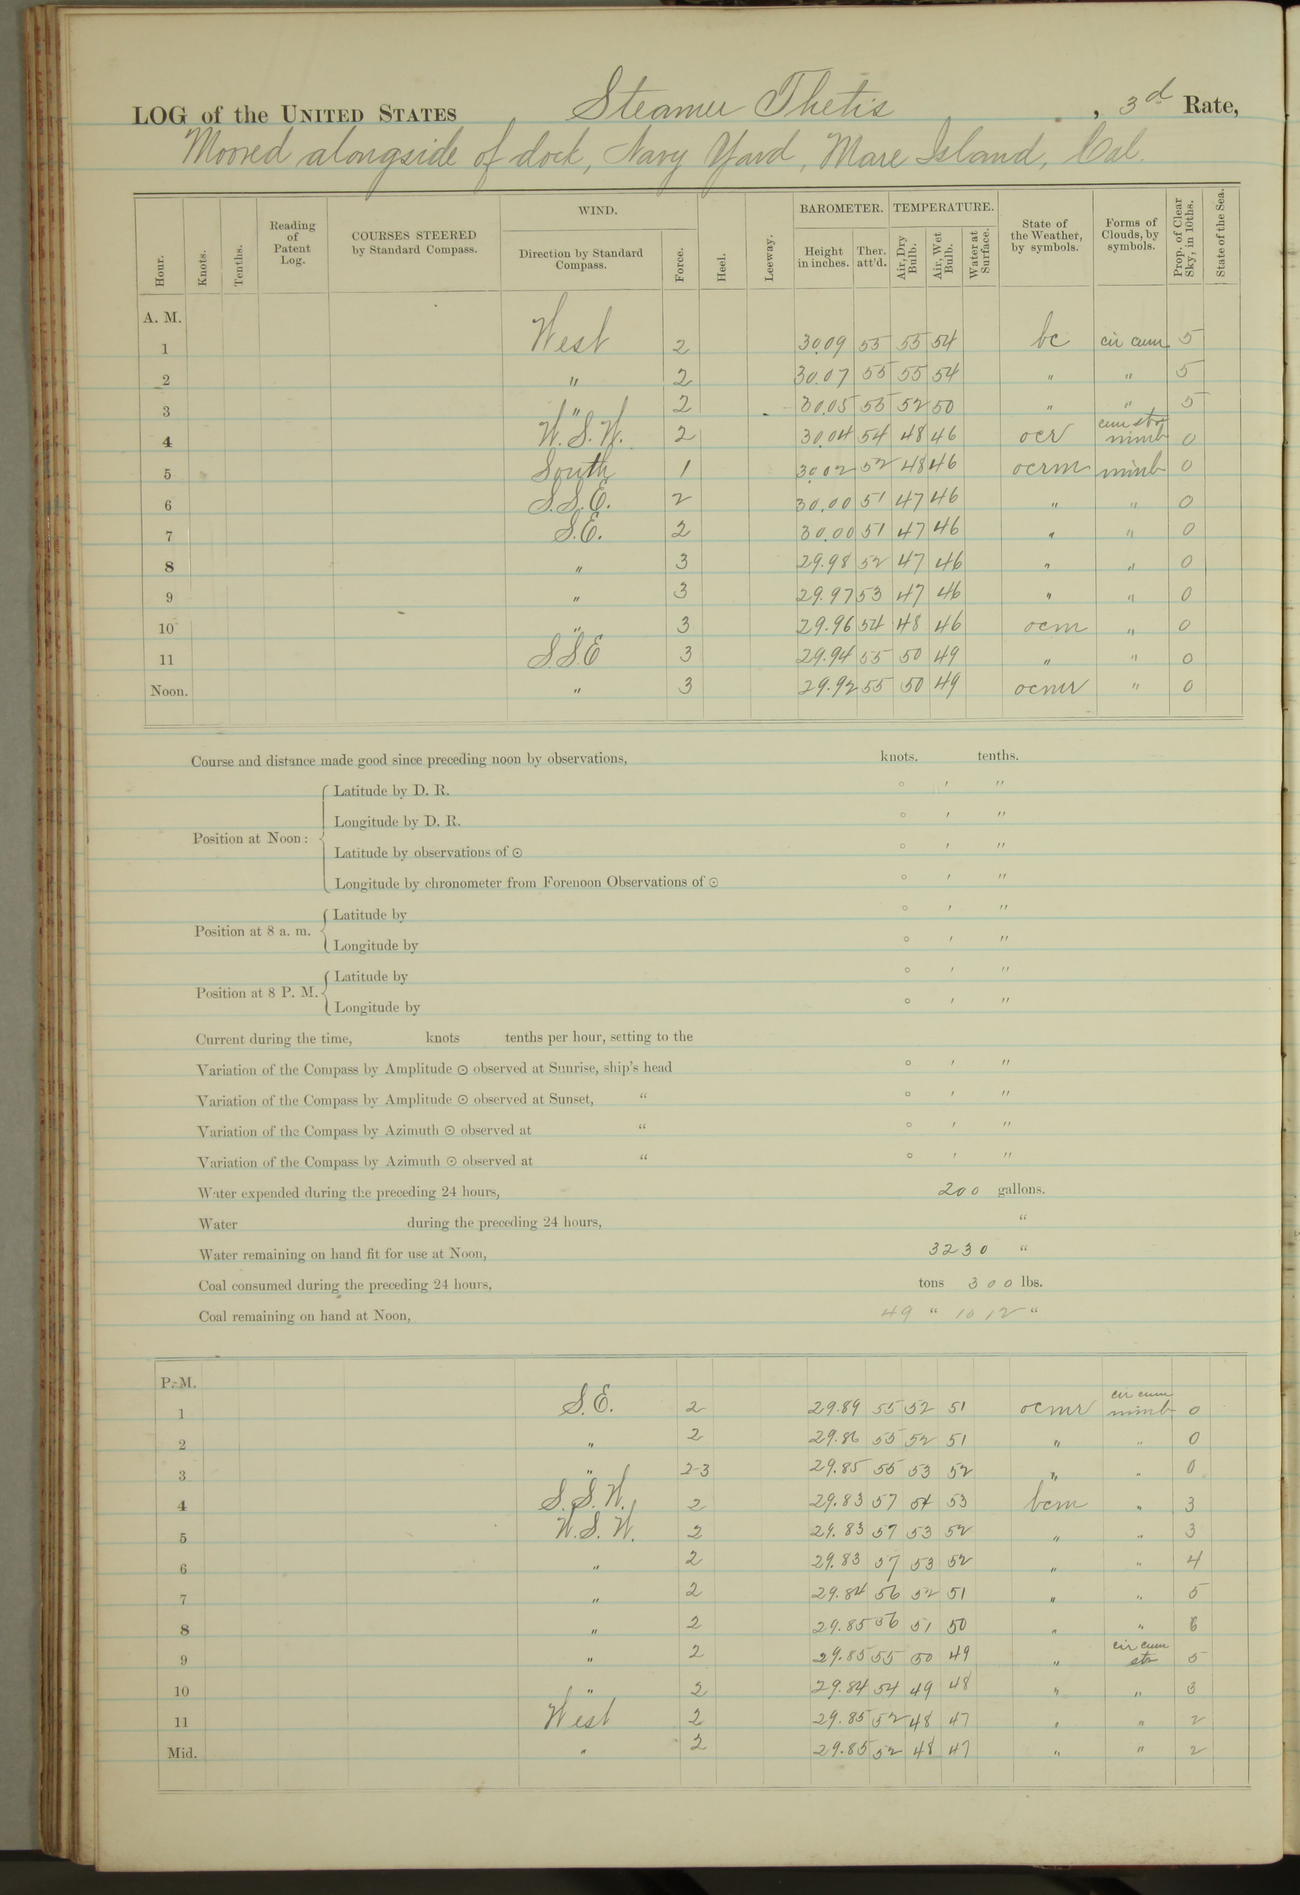 LOG of the UNITED STATES Steamer Thetis, 3d Rate,
Moored alongside of dock, Navy Yard, Mare Island, Cal.
Hour. Knots. Tenths. Reading of Patent Log. COURSES STEERED by Standard Compass. WIND. Direction by Standard Compass. Force. Heel. Leeway. BAROMETER. Height in inches. Ther. att'd. TEMPERATURE. Air, Dry Bulb. Air, Wet Bulb. Water at Surface. State of the Weather, by symbols. Forms of Clouds, by symbols. Prop. of Clear Sky, in 10ths. State of the Sea.
A. M.
1 West 2 30.09 55 55 54 bc cir cum 5
2 " 2 30.07 55 55 54 " " 5
3 " 2 30.05 55 52 50 " " 5
4 W.S.W. 2 30.04 54 48 46 ocr cum str nimb 0
5 South 1 30.02 52 48 46 ocrm nimb 0
6 S.S.E. 2 30.00 51 47 46 " " 0
7 S.E. 2 30.00 51 47 46 " " 0
8 " 3 29.98 52 47 46 " " 0
9 " 3 29.97 53 47 46 " " 0
10 " 3 29.96 54 48 46 ocm " 0
11 S.S.E 3 29.94 55 50 49 " " 0
Noon. " 3 29.92 55 50 49 ocmr " 0
Course and distance made good since preceding noon by observations, knots. tenths.
Position at Noon:
Latitude by D. R. ° ′ ″
Longitude by D. R. ° ′ ″
Latitude by observations of ⊙ ° ′ ″
Longitude by chronometer from Forenoon Observations of ⊙ ° ′ ″
Position at 8 a. m.
Latitude by ° ′ ″
Longitude by ° ′ ″
Position at 8 P. M.
Latitude by ° ′ ″
Longitude by ° ′ ″
Current during the time, knots tenths per hour, setting to the
Variation of the Compass by Amplitude ⊙ observed at Sunrise, ship's head ° ′ ″
Variation of the Compass by Amplitude ⊙ observed at Sunset, “ ° ′ ″
Variation of the Compass by Azimuth ⊙ observed at “ ° ′ ″
Variation of the Compass by Azimuth ⊙ observed at “ ° ′ ″
Water expended during the preceding 24 hours, 200 gallons.
Water during the preceding 24 hours, “
Water remaining on hand fit for use at Noon, 3230 “
Coal consumed during the preceding 24 hours, tons 300 lbs.
Coal remaining on hand at Noon, 49 “ 1012 “
P. M.
1 S.E. 2 29.89 55 52 51 ocmr cir cum nimb 0
2 " 2 29.86 55 52 51 " " 0
3 " 2-3 29.85 55 53 52 " " 0
4 S.S.W. 2 29.83 57 54 53 bcm " 3
5 W.S.W. 2 29.83 57 53 52 " " 3
6 " 2 29.83 57 53 52 " " 4
7 " 2 29.84 56 52 51 " " 5
8 " 2 29.85 56 51 50 " " 6
9 " 2 29.85 55 50 49 " cir cum str 5
10 " 2 29.84 54 49 48 " " 3
11 West 2 29.85 52 48 47 " " 2
Mid. " 2 29.85 52 48 47 " " 2